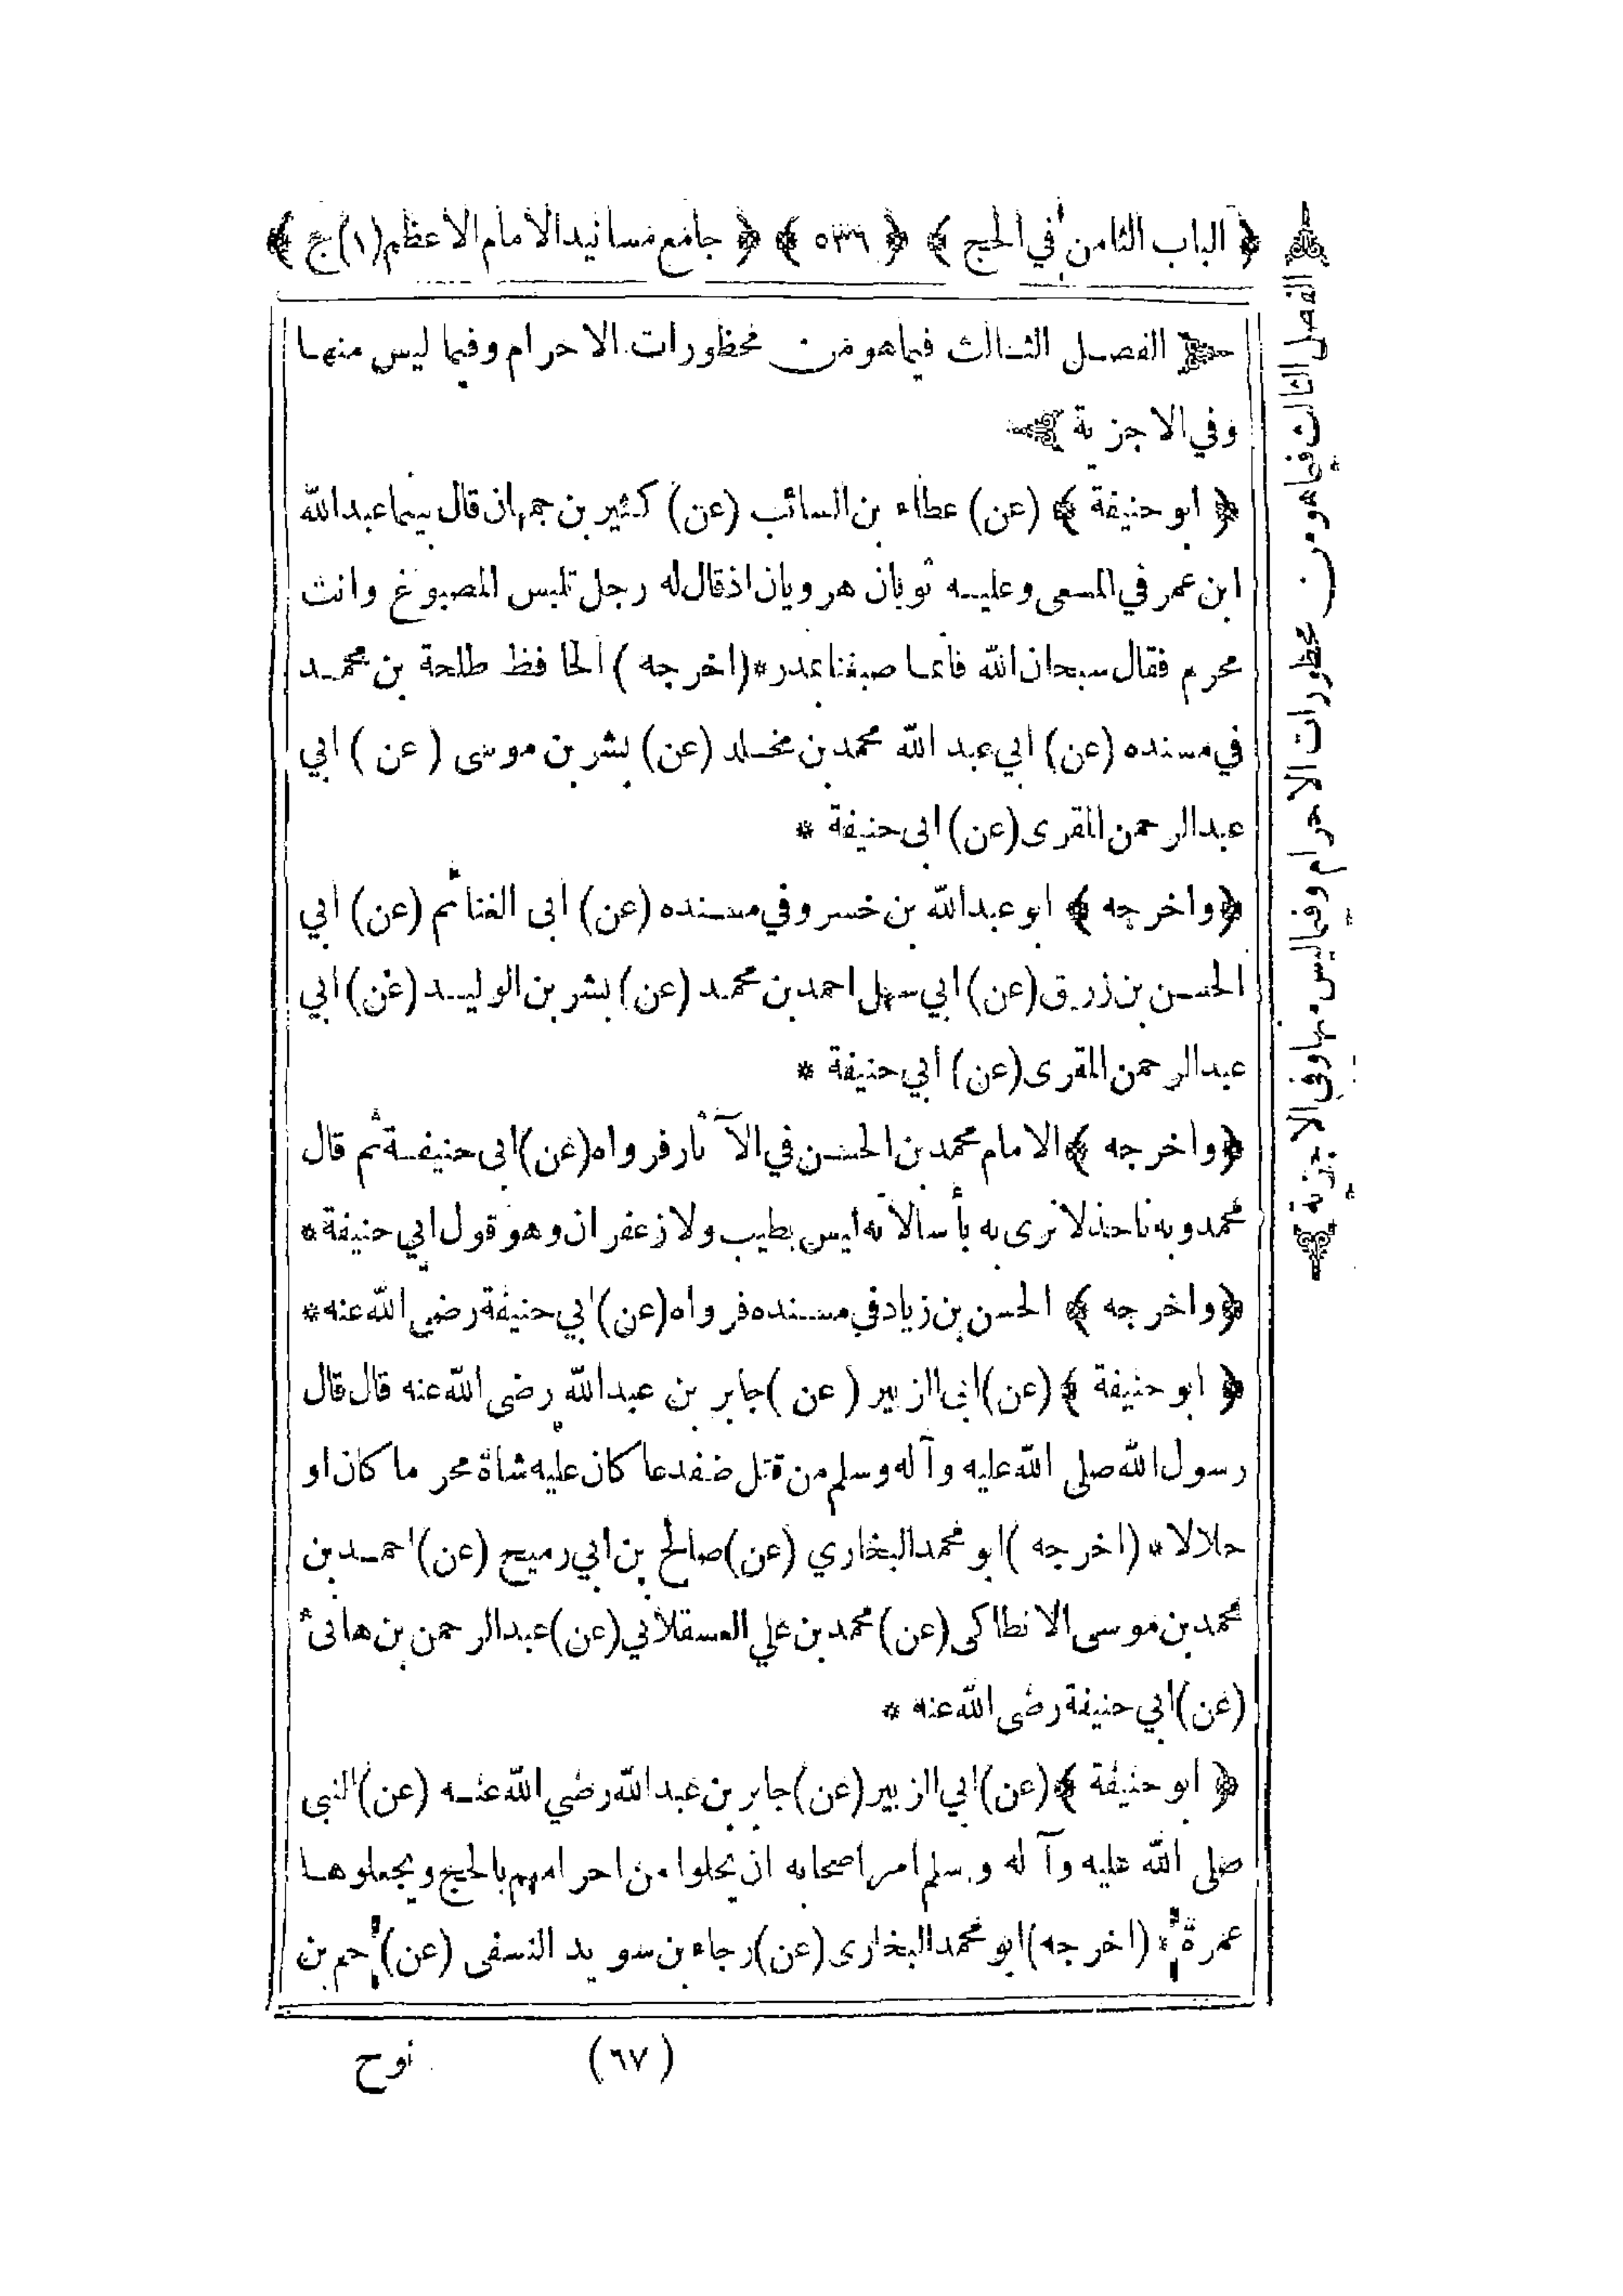 ﴿ الباب الثامن في الحج ﴾ ﴿ ٥٢٩ ﴾ ﴿ جامع مسانيد الامام الاعظم (١) ج ﴾
الفصل الثالث فيما هو من محظورات الاحرام وفيما ليس منها
وفي الاجزية
﴿ ابو حنيفة ﴾ (عن) عطاء بن السائب (عن) كثير بن جمهان قال بينما عبد الله
ابن عمر في المسعى وعليه ثوبان هرويان اذ قال له رجل تلبس المصبوغ وانت
محرم فقال سبحان الله فانما صبغنا بمدر * (اخرجه) الحافظ طلحة بن محمد
في مسنده (عن) ابي عبد الله محمد بن مخلد (عن) بشر بن موسى (عن) ابي
عبد الرحمن المقرى (عن) ابى حنيفة *
﴿ واخرجه ﴾ ابو عبد الله بن خسرو في مسنده (عن) ابى الغنائم (عن) ابي
الحسن بن زريق (عن) ابي سهل احمد بن محمد (عن) بشر بن الوليد (عن) ابي
عبد الرحمن المقرى (عن) ابي حنيفة *
﴿ واخرجه ﴾ الامام محمد بن الحسن في الآثار فرواه (عن) ابى حنيفة ثم قال
محمد وبه ناخذ لا نرى به بأسا لانه ليس بطيب ولا زعفران وهو قول ابي حنيفة *
﴿ واخرجه ﴾ الحسن بن زياد في مسنده فرواه (عن) ابي حنيفة رضي الله عنه *
﴿ ابو حنيفة ﴾ (عن) ابى الزبير (عن) جابر بن عبد الله رضى الله عنه قال قال
رسول الله صلى الله عليه وآله وسلم من قتل ضفدعا كان عليه شاة محرما كان او
حلالا * (اخرجه) ابو محمد البخاري (عن) صالح بن ابي رميح (عن) احمد بن
محمد بن موسى الانطاكى (عن) محمد بن علي العسقلاني (عن) عبد الرحمن بن هانئ
(عن) ابي حنيفة رضى الله عنه *
﴿ ابو حنيفة ﴾ (عن) ابي الزبير (عن) جابر بن عبد الله رضي الله عنه (عن) النبى
صلى الله عليه وآله وسلم امر اصحابه ان يحلوا من احرامهم بالحج ويجعلوها
عمرة * (اخرجه) ابو محمد البخارى (عن) رجاء بن سويد النسفى (عن) حم بن
(٦٧) نوح
الفصل الثالث فيما هو من محظورات الاحرام وفيما ليس منها وفي الاجزية